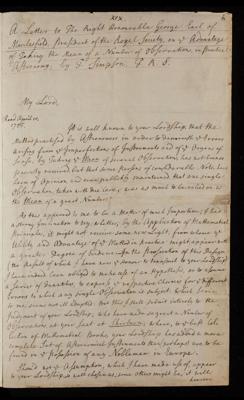 XIX.
6
A Letter to The Right Honourable George Earl of
Macclesfield, President of the Royal Society, on ye Advantage
of Taking the Mean of a Number of Observations, in practical
Astronomy, by T. Simpson, F. R. S.
My Lord,
Read April 10,
1755.
It is well known to your Lordship, that the
Method practised by Astronomers in order to diminish ye Errors
arising from ye Imperfections of Instruments and of ye Organs of
Sense, by Taking ye Mean of several Observations, has not been so
generally received, but that some persons, of considerable Note, have
been of Opinion, and even publickly maintained, that one single
Observation, taken with due care, was as much to be relied on as
the Mean of a great Number.
As this appeared to me to be a Matter of much importance, I had a
strong Inclination to try whether, by the Application of Mathematical
Principles, it might not receive some new Light, from whence ye
Utility and Advantage of ye Method in practice might appear with
a greater Degree of Evidence. In the Prosecution of this Design,
the Result of which I have now ye Honour to transmit to your Lordship
I have indeed been obliged to make use of an Hypothesis, or to assume
a Series of Numbers to express ye respective Chances for ye different
Errors to which any single Observation is subject, which Series,
to me, seems not ill adapted. But this I shall submit intirely to the
Judgment of your Lordship, who have made so great a Number of
Observations at your Seat at Shirburn, where, to ye best Col-
lection of Mathematical Books, your Lordship has added a more
complete Set of Astronomical Instruments than perhaps can be
found in ye Possession of any Nobleman in Europe.
Should not ye Assumption, which I have made use of, appear
to your Lordship so well chosen as some others might be, it will
however